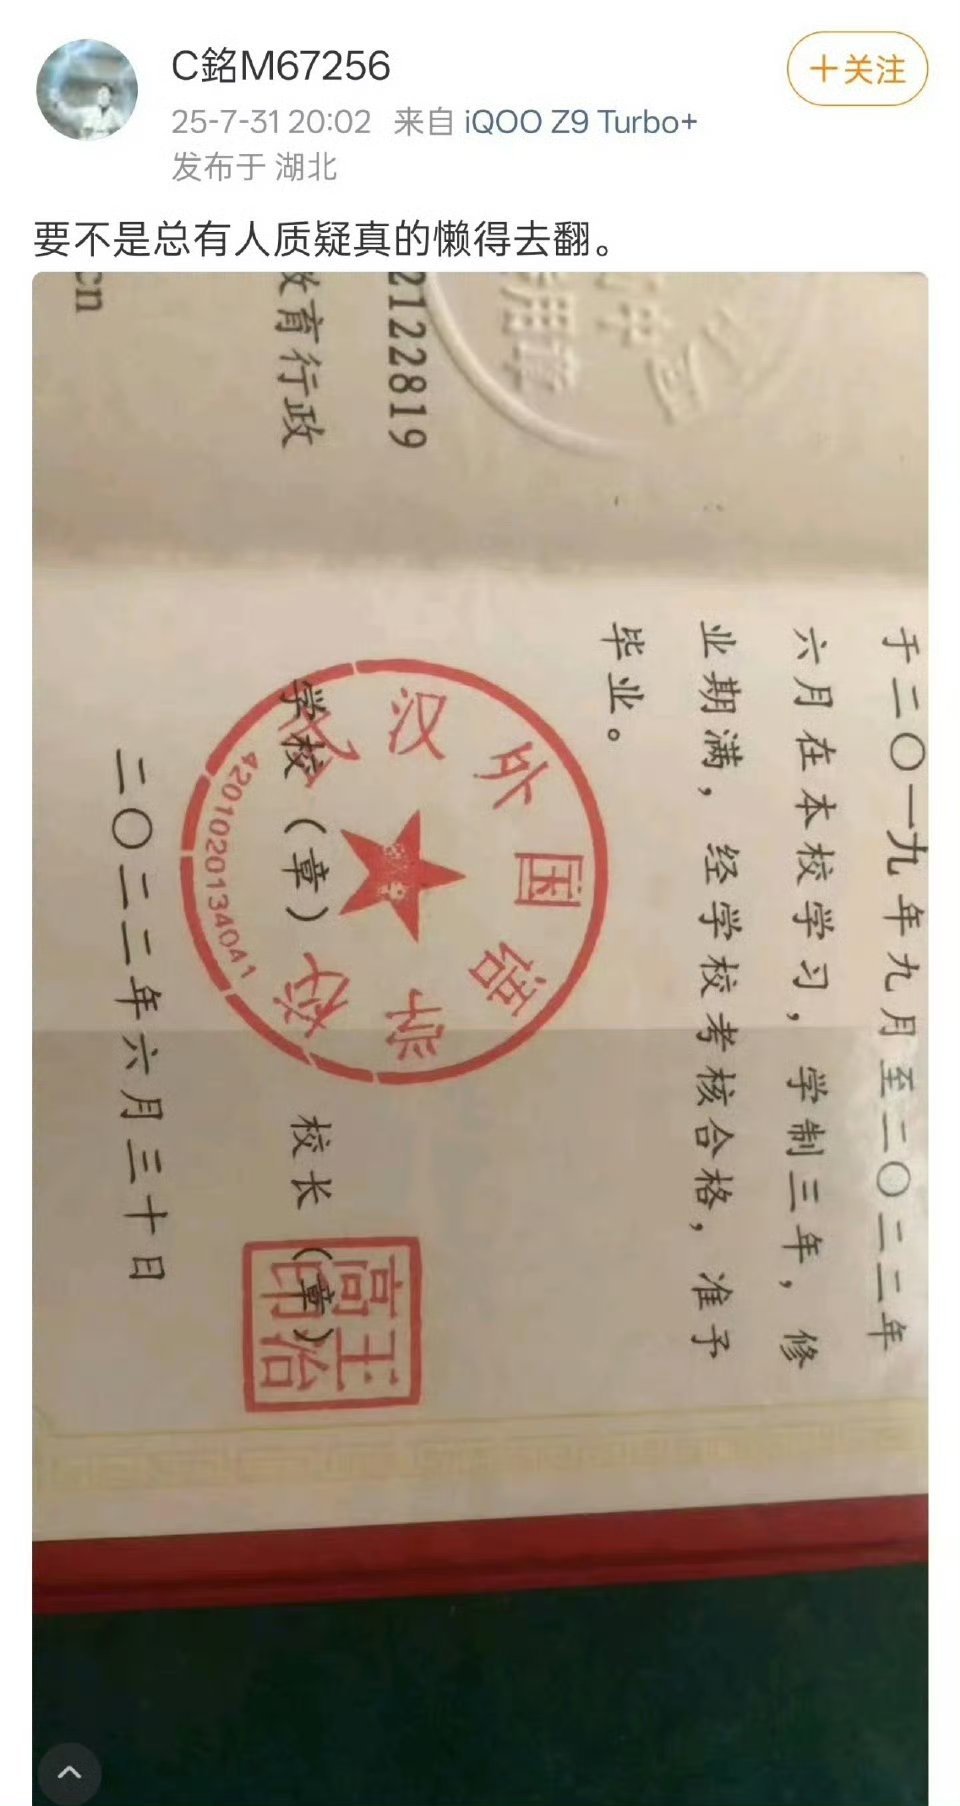 C銘M67256
+关注
25-7-31 20:02 来自 iQOO Z9 Turbo+
发布于 湖北
要不是总有人质疑真的懒得去翻。
用章
2122819
教育行政
cn
于二〇一九年九月至二〇二二年
六月在本校学习，学制三年，修
业期满，经学校考核合格，准予
毕业。
武汉外国语学校
4201020134041
学校（章）
校长（章）
二〇二二年六月三十日